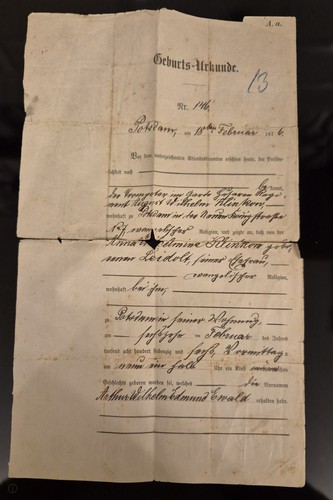 A. a.
Geburts-Urkunde.
13
Nr. 146
Potsdam, am 18ten Februar 1876.
Vor dem unterzeichneten Standesbeamten erschien heute, der Persön-
lichkeit nach
kannt,
der Trompeter im Garde Husaren Regi-
ment August Wilhelm Klinkow,
wohnhaft zu Potsdam in der Neuen Königstraße
evangelischer Religion, und zeigte an, daß von der
Anna Klinkow gebo-
renen Leidolt, seiner Ehefrau,
evangelischer Religion,
wohnhaft bei ihm,
zu Potsdam in seiner Wohnung
am sechszehn ten Februar des Jahres
tausend acht hundert siebenzig und sechs, Vormittags
um neun ein halb Uhr ein Kind männlichen
Geschlechts geboren worden sei, welches die Vornamen
Arthur Wilhelm Edmund Ewald erhalten habe.